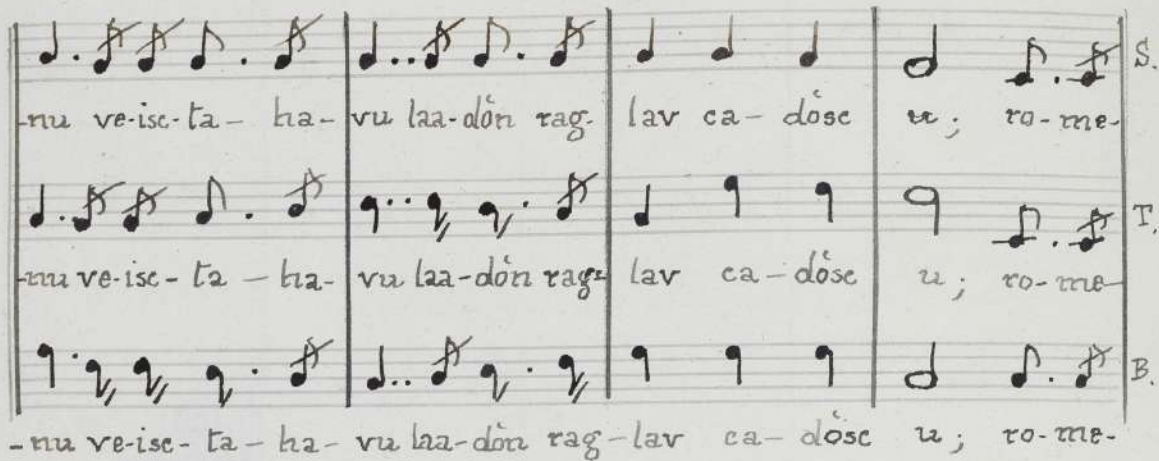 S.
-nu ve-isc-ta-ha-vu laa-dòn rag-lav ca-dòsc u; ro-me-
T.
-nu ve-isc-ta-ha-vu laa-dòn rag-lav ca-dòsc u; ro-me-
B.
-nu ve-isc-ta-ha-vu laa-dòn rag-lav ca-dòsc u; ro-me-